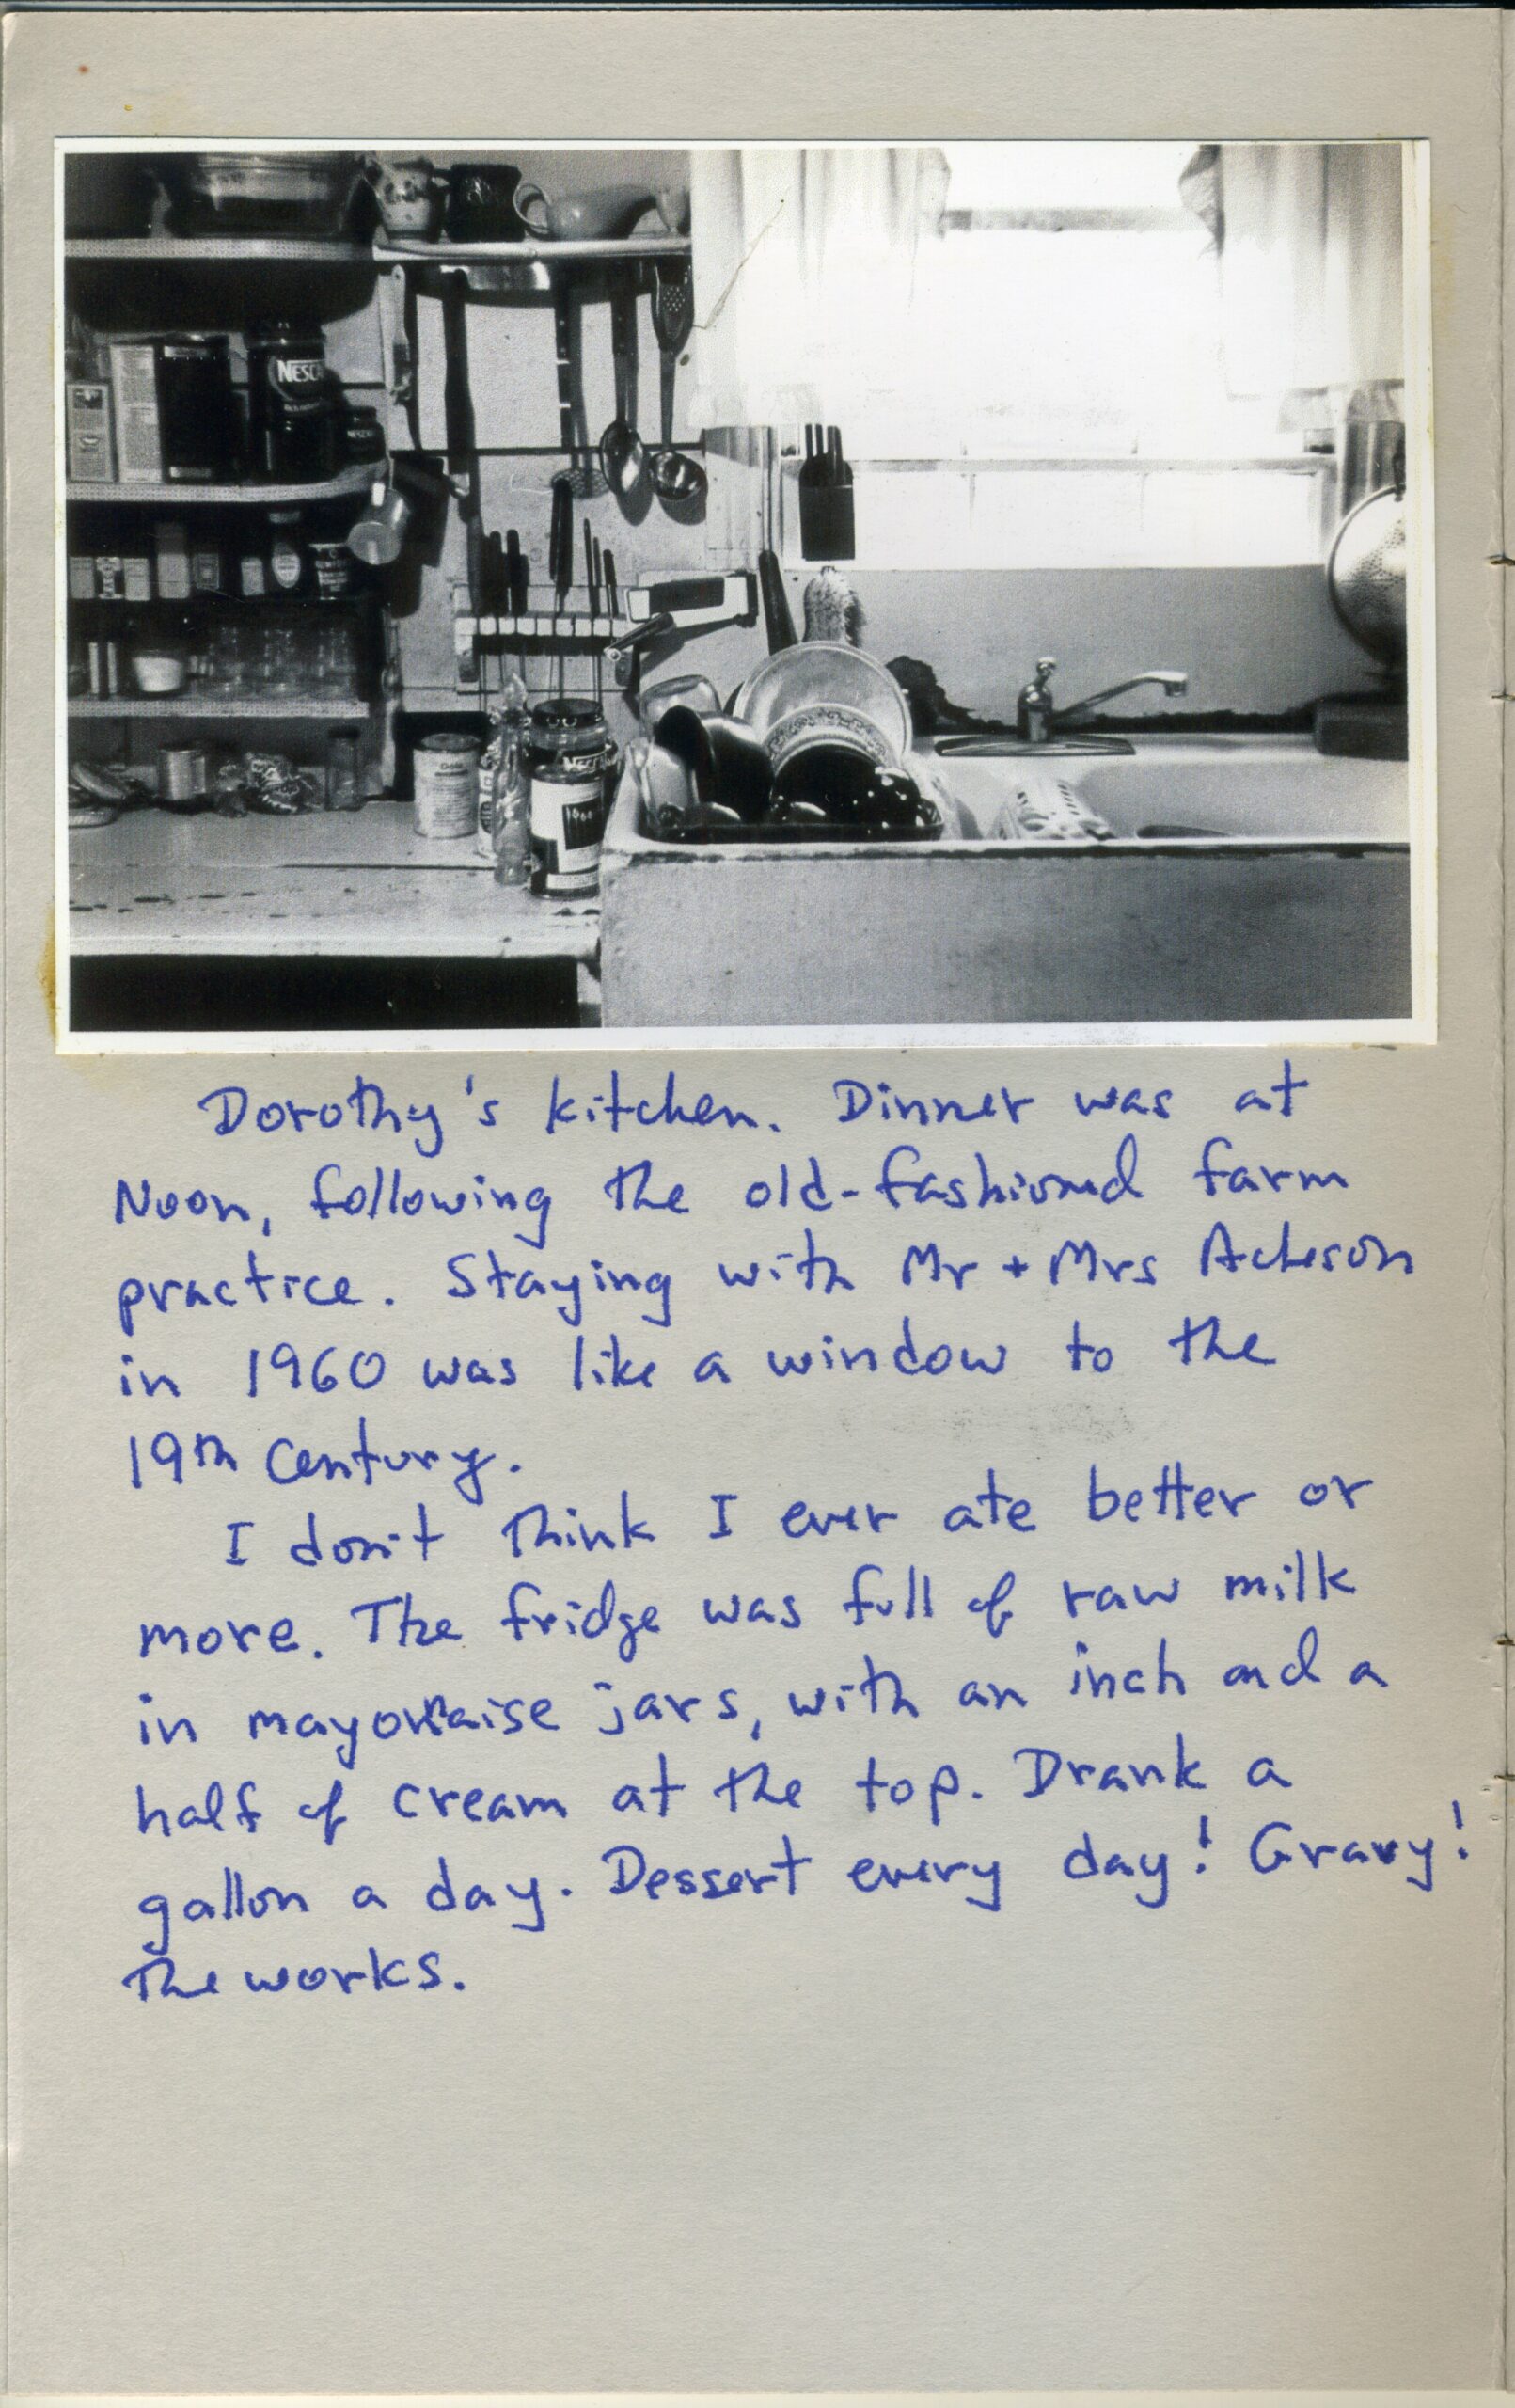 NESC
Dorothy's kitchen. Dinner was at
Noon, following the old-fashioned farm
practice. Staying with Mr + Mrs Acheson
in 1960 was like a window to the
19th Century.
I don't think I ever ate better or
more. The fridge was full of raw milk
in mayonaise jars, with an inch and a
half of cream at the top. Drank a
gallon a day. Dessert every day! Gravy!
The works.